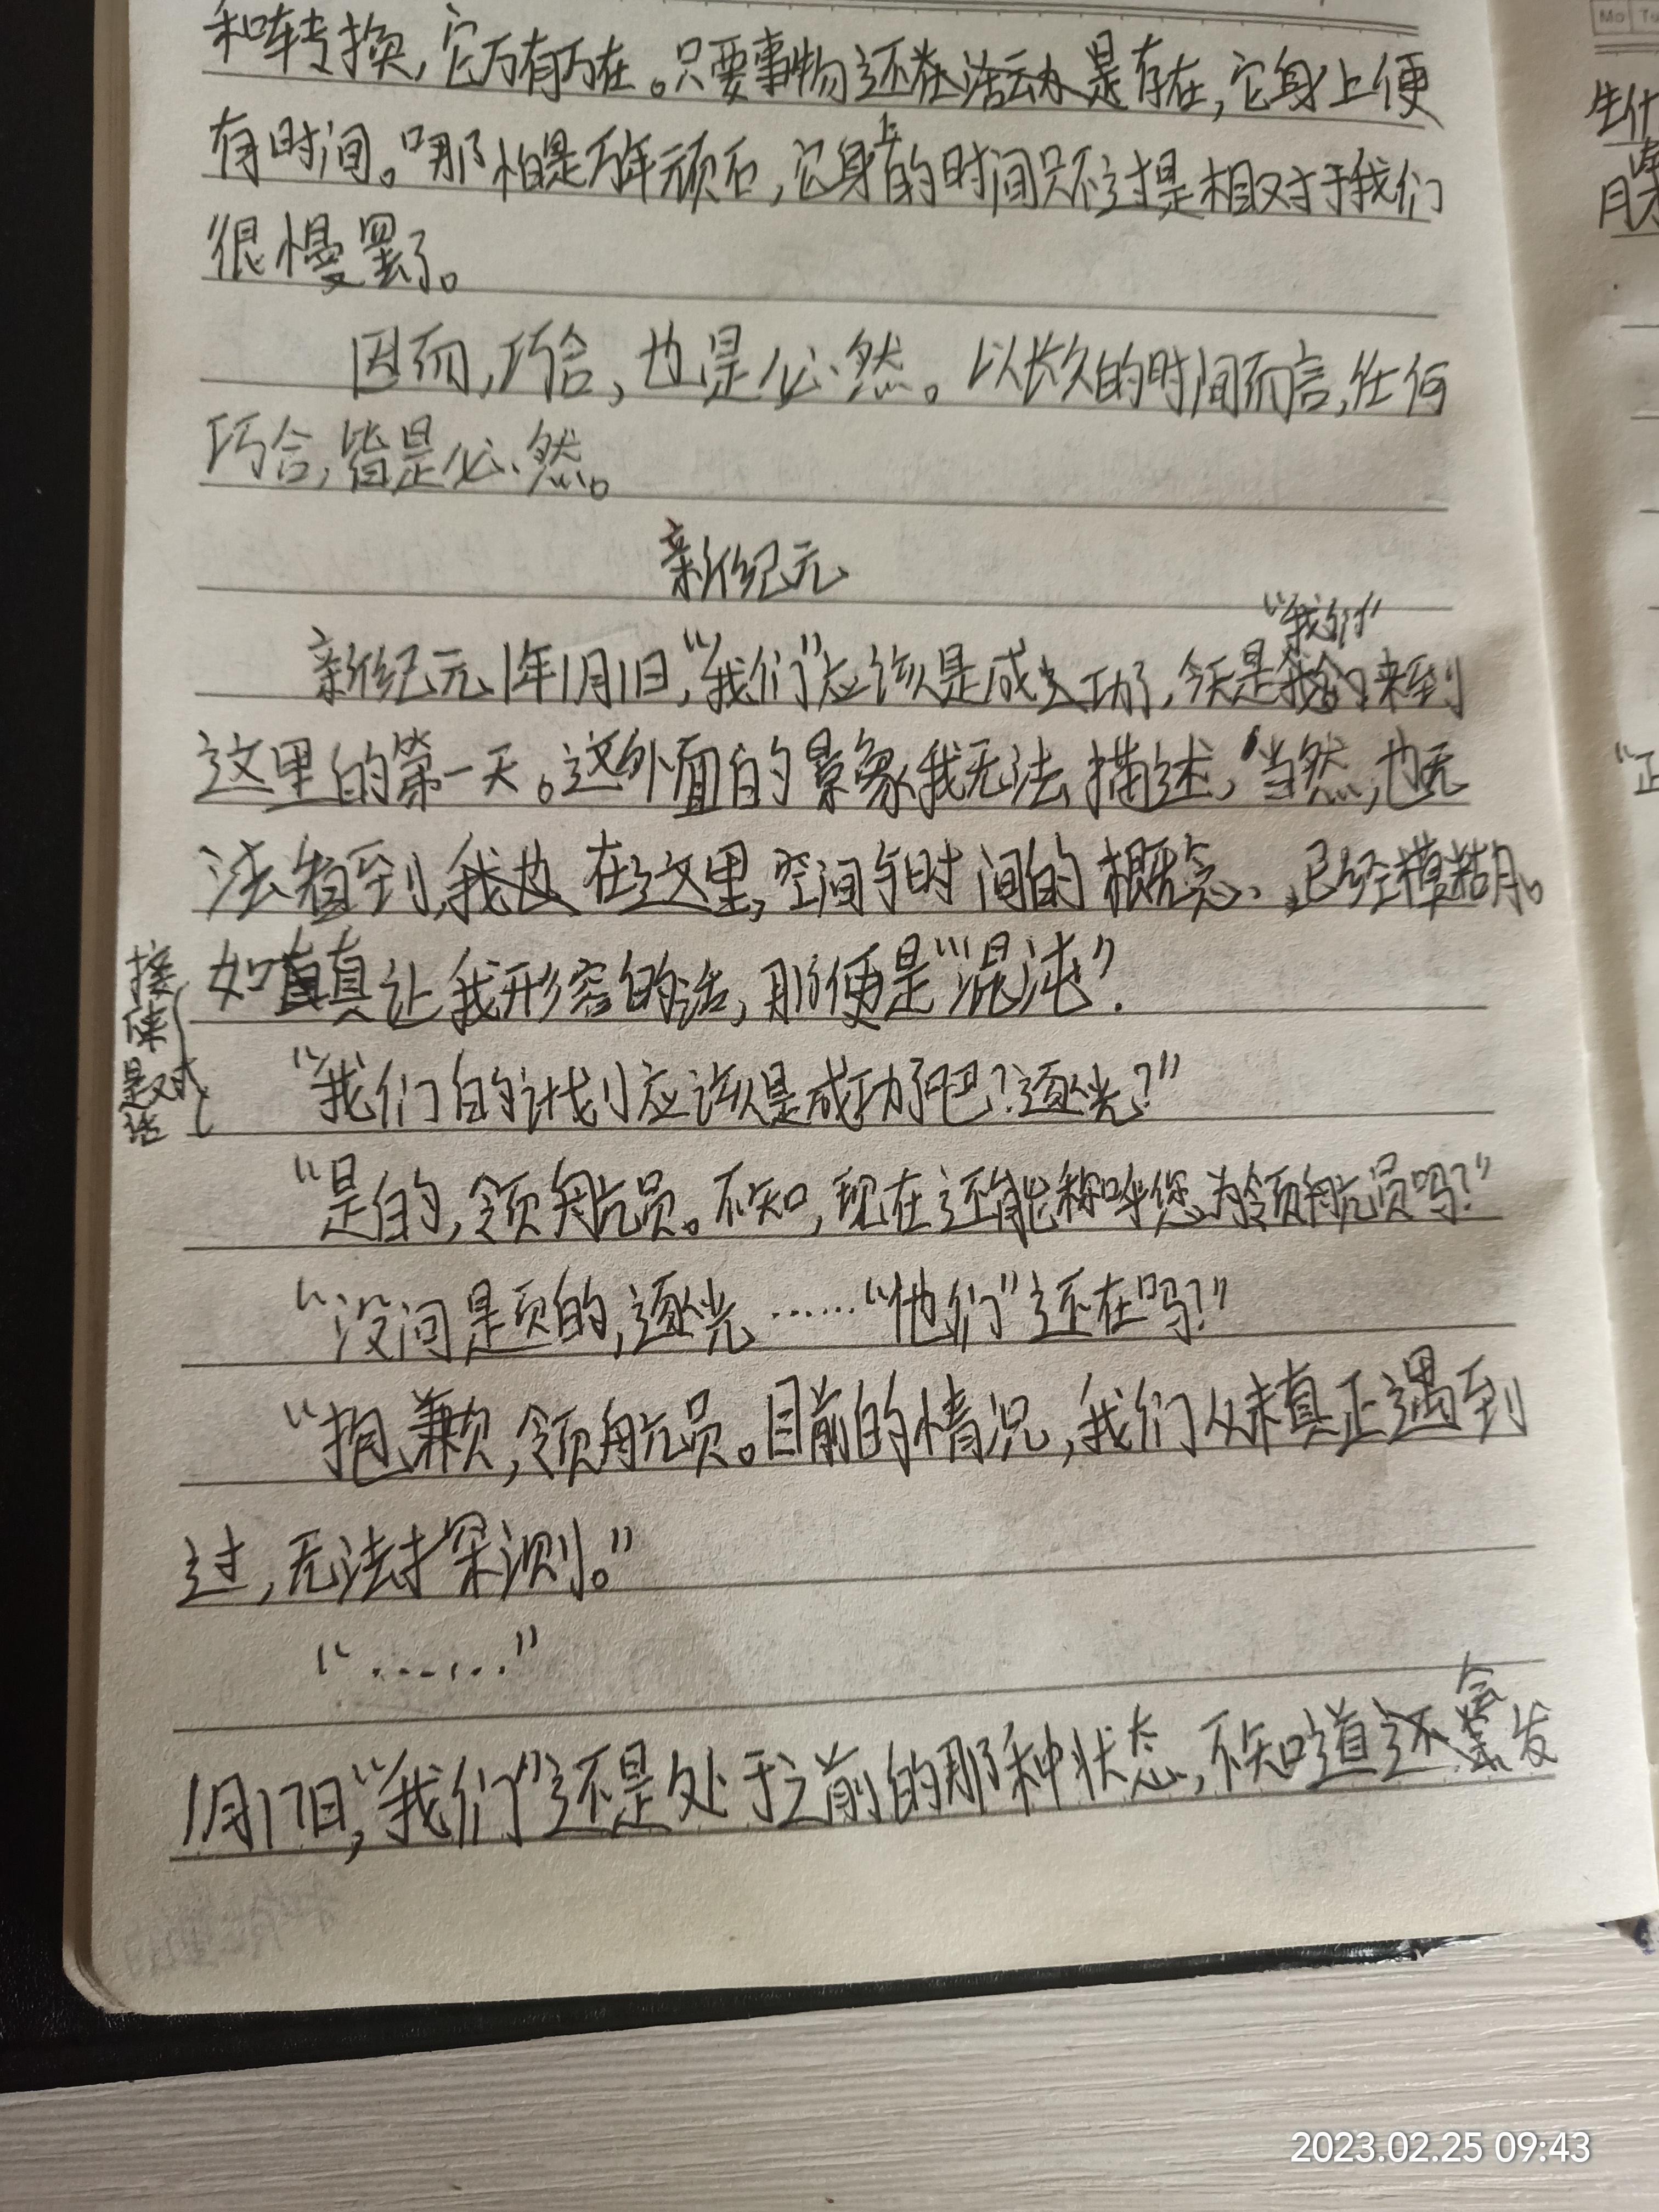 和转换,它万有万在。只要事物还在活动是存在,它身上便
有时间。哪怕是万年顽石,它身上的时间只不过是相对于我们
很慢罢了。
因而,巧合,也是必然。以长久的时间而言,任何
巧合,皆是必然。
新纪元
新纪元1年1月1日,“我们”应该是成功了,今天是“我们”来到
这里的第一天。这外面的景象我无法描述,当然,也无
法看到,在这里,空间与时间的概念、已经模糊。
如真让我形容的话,那便是“混沌”.
接下来是对话
“我们的计划应该是成功了吧?逐光?”
“是的,领航员。不知,现在还能称呼您为领航员吗?”
“没问题的,逐光……“他们”还在吗?”
“抱歉,领航员。目前的情况,我们从未真正遇到
过,无法探测。”
“……”
1月17日,“我们”还是处于之前的那种状态,不知道还会发
生什
“正
2023.02.25 09:43